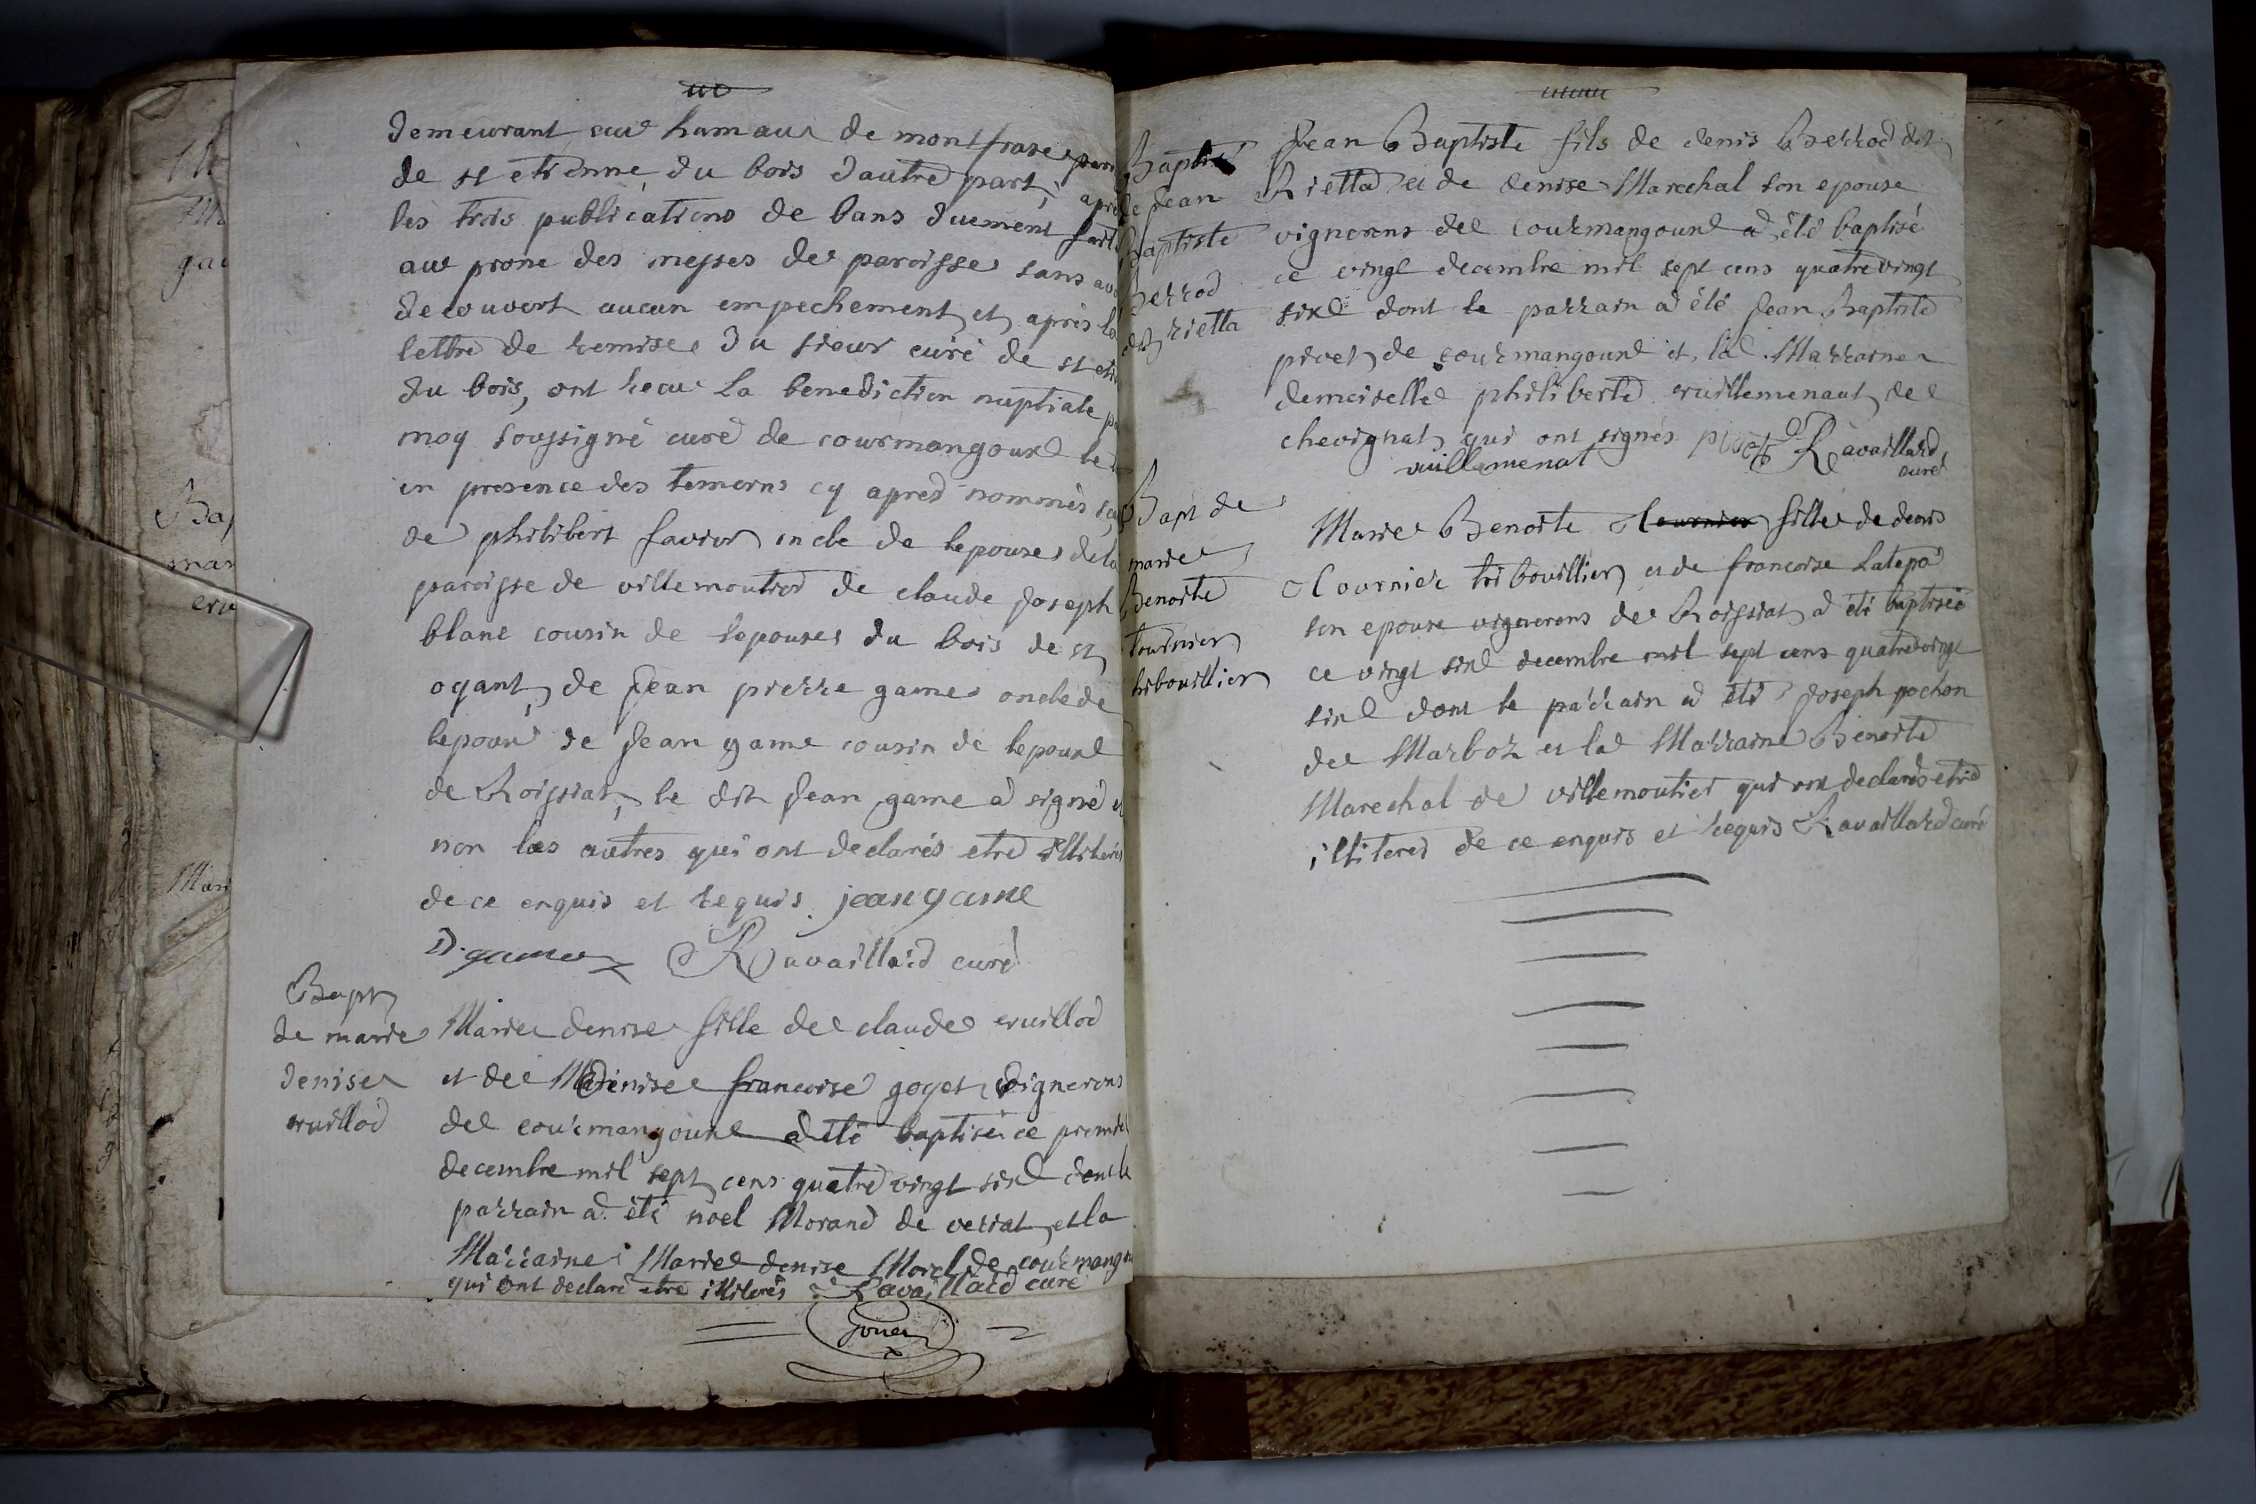 demeurant au hamau de montfrase
de st etienne du bois dautre part, apres
les trois publications de bans duement fait
au prone des messes de paroisse sans
decouvert aucun empechement et après la
lettre de remise du sieur curé de st
du bois, ont recu la benediction nuptiale
moy soussigné curé de courmangoux le
en presence des temoins cy apres nommés
de philibert favier oncle de lepouse de la
paroisse de villemoutier de claude joseph
blanc cousin de lepouse du bois de st
oyant, de jean pierre game oncle de
lepoux de jean game cousin de lepoux
de Roissiat, le dit jean game a signé et
non les autres qui ont declarés etre illiterés
de ce enquis et requis jean game
D. game Ravaillard curé
Bapt
de marie
denise
vuillod
Marie denise fille de claude vuillod
et de denise francoise goyet vignerons
de courmangoux a été baptisée ce premier
decembre mil sept cens quatre vingt six dont le
parrain a été noel Morand de verjat et la
Marraine Marie denise Morel de courmangou
qui ont declaré etre illiterés Ravaillard curé
Bapt
de jean
Baptiste
Berrod
dit rietta
Jean Baptiste fils de denis Berrod dit
Rietta et de denise Marechal son epouse
vignerons de courmangoux a été baptisé
ce vingt decembre mil sept cens quatre vingt
six dont le parrain a été jean Baptiste
pivet de courmangoux et la Marraine
demoiselle philiberte vuillemenaut de
chevignat qui ont signés pivet Ravaillard
vuillemenat curé
Bapt de
marie
Benoite
tournier
tribouillier
Marie Benoite Tournier fille de denis
Tournier tribouillier et de francoise Laterpa
son epouse vignerons de Roissiat a été baptisée
ce vingt six decembre mil sept cens quatre vingt
six dont le parrain a été Joseph pochon
de Marboz et la Marraine Benoite
Marechal de villemoutier qui ont declarés etre
illiteres de ce enquis et requis Ravaillard curé